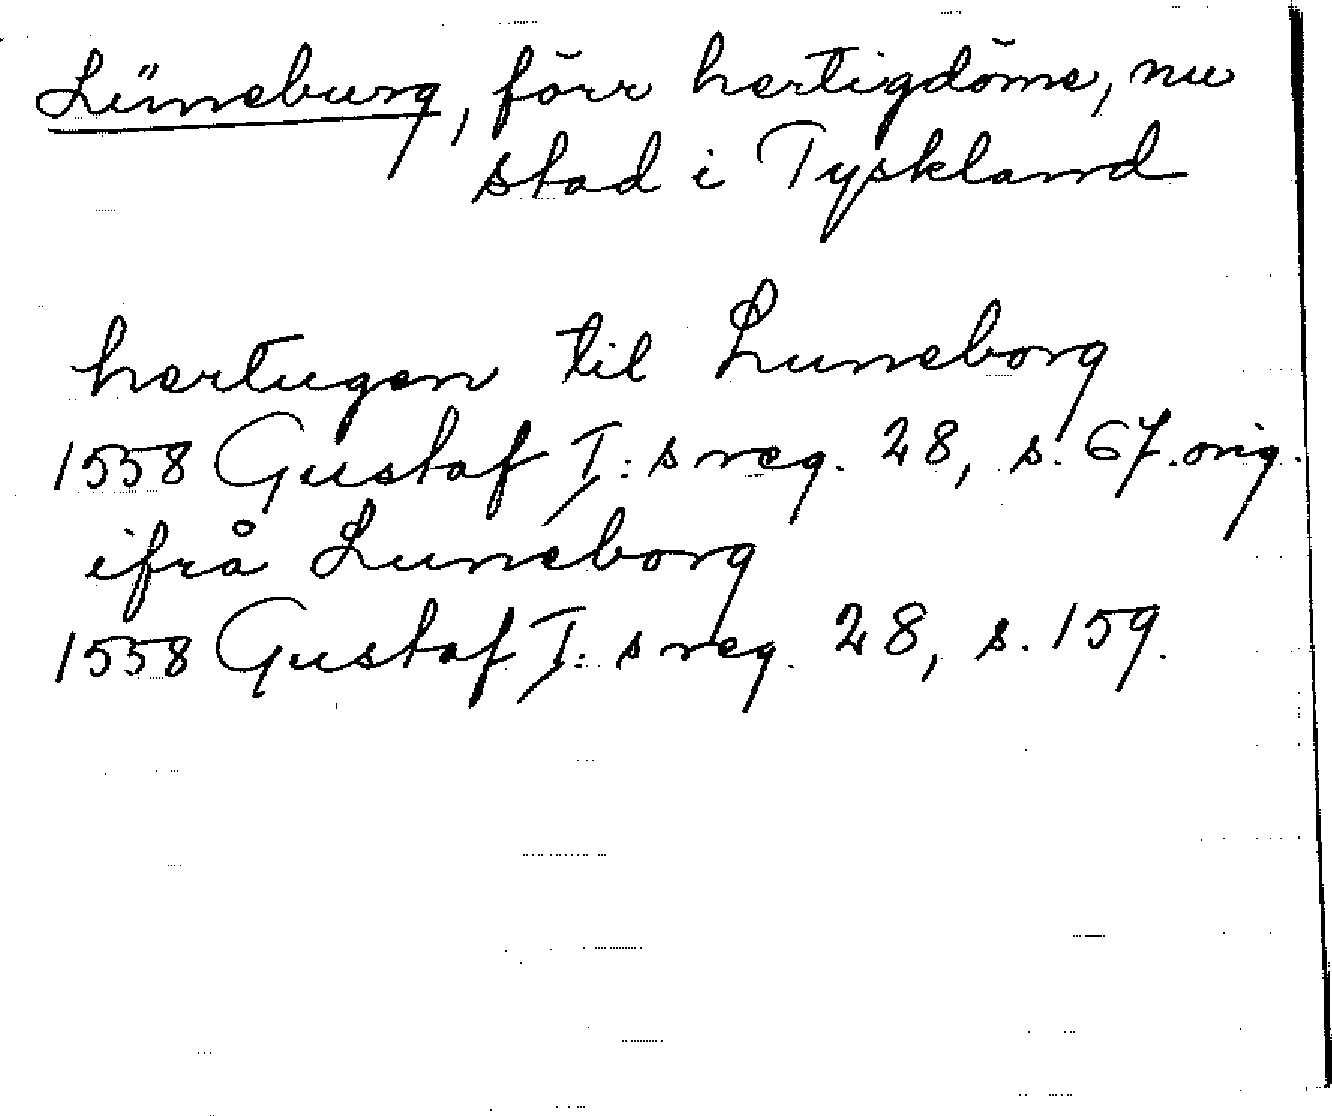 Lüneburg, förr hertigdöme, nu
stad i Tyskland
hertugen til Luneborg
1558 Gustaf I: s reg. 28, s. 67. orig.
ifrå Luneborg
1558 Gustaf I: s reg. 28, s. 159.